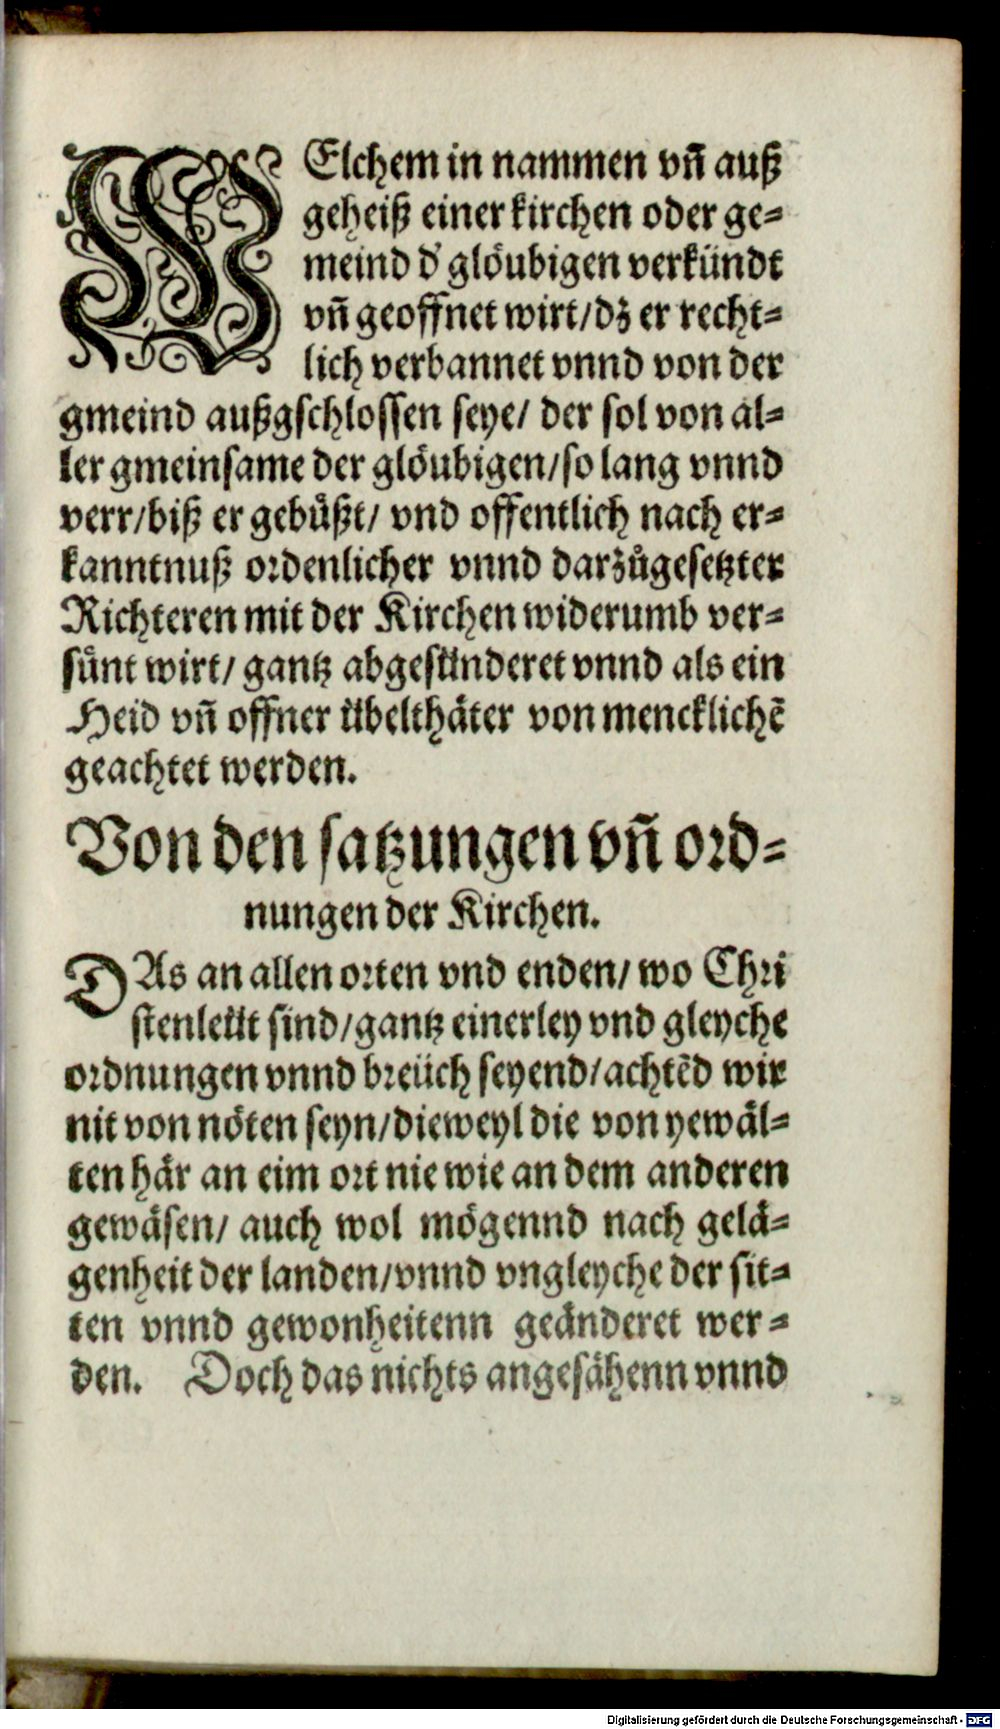 WElchem in nammen vñ auß
geheiß einer kirchen oder ge=
meind d' glöubigen verkündt
vñ geoffnet wirt/dz er recht=
lich verbannet vnnd von der
gmeind außgschlossen seye/ der sol von al=
ler gmeinsame der glöubigen/so lang vnnd
verr/biß er gebuͤßt/ vnd offentlich nach er=
kanntnuß ordenlicher vnnd darzuͦgesetzter
Richteren mit der Kirchen widerumb ver=
suͤnt wirt/ gantz abgesünderet vnnd als ein
Heid vñ offner übelthäter von mencklichẽ
geachtet werden.
Von den satzungen vñ ord=
nungen der Kirchen.
DAs an allen orten vnd enden/ wo Chri
stenleüt sind/gantz einerley vnd gleyche
ordnungen vnnd breüch seyend/achtẽd wir
nit von nöten seyn/dieweyl die von yewäl=
ten här an eim ort nie wie an dem anderen
gewäsen/ auch wol mögennd nach gelä=
genheit der landen/vnnd vngleyche der sit=
ten vnnd gewonheitenn geänderet wer=
den. Doch das nichts angesähenn vnnd
Digitalisierung gefördert durch die Deutsche Forschungsgemeinschaft - DFG